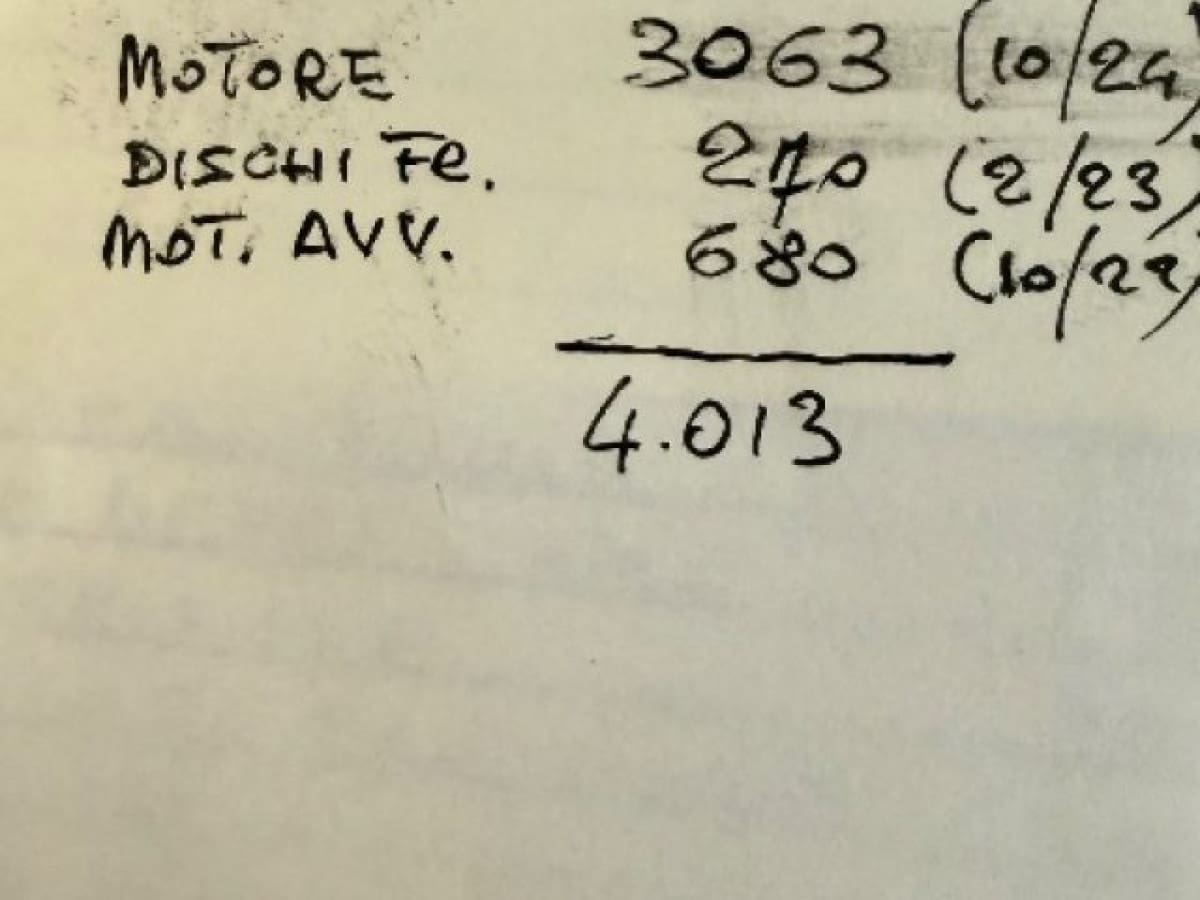 MOTORE 3063 (10/24)
DISCHI Fe. 270 (2/23)
MOT. AVV. 680 (10/22)
4.013